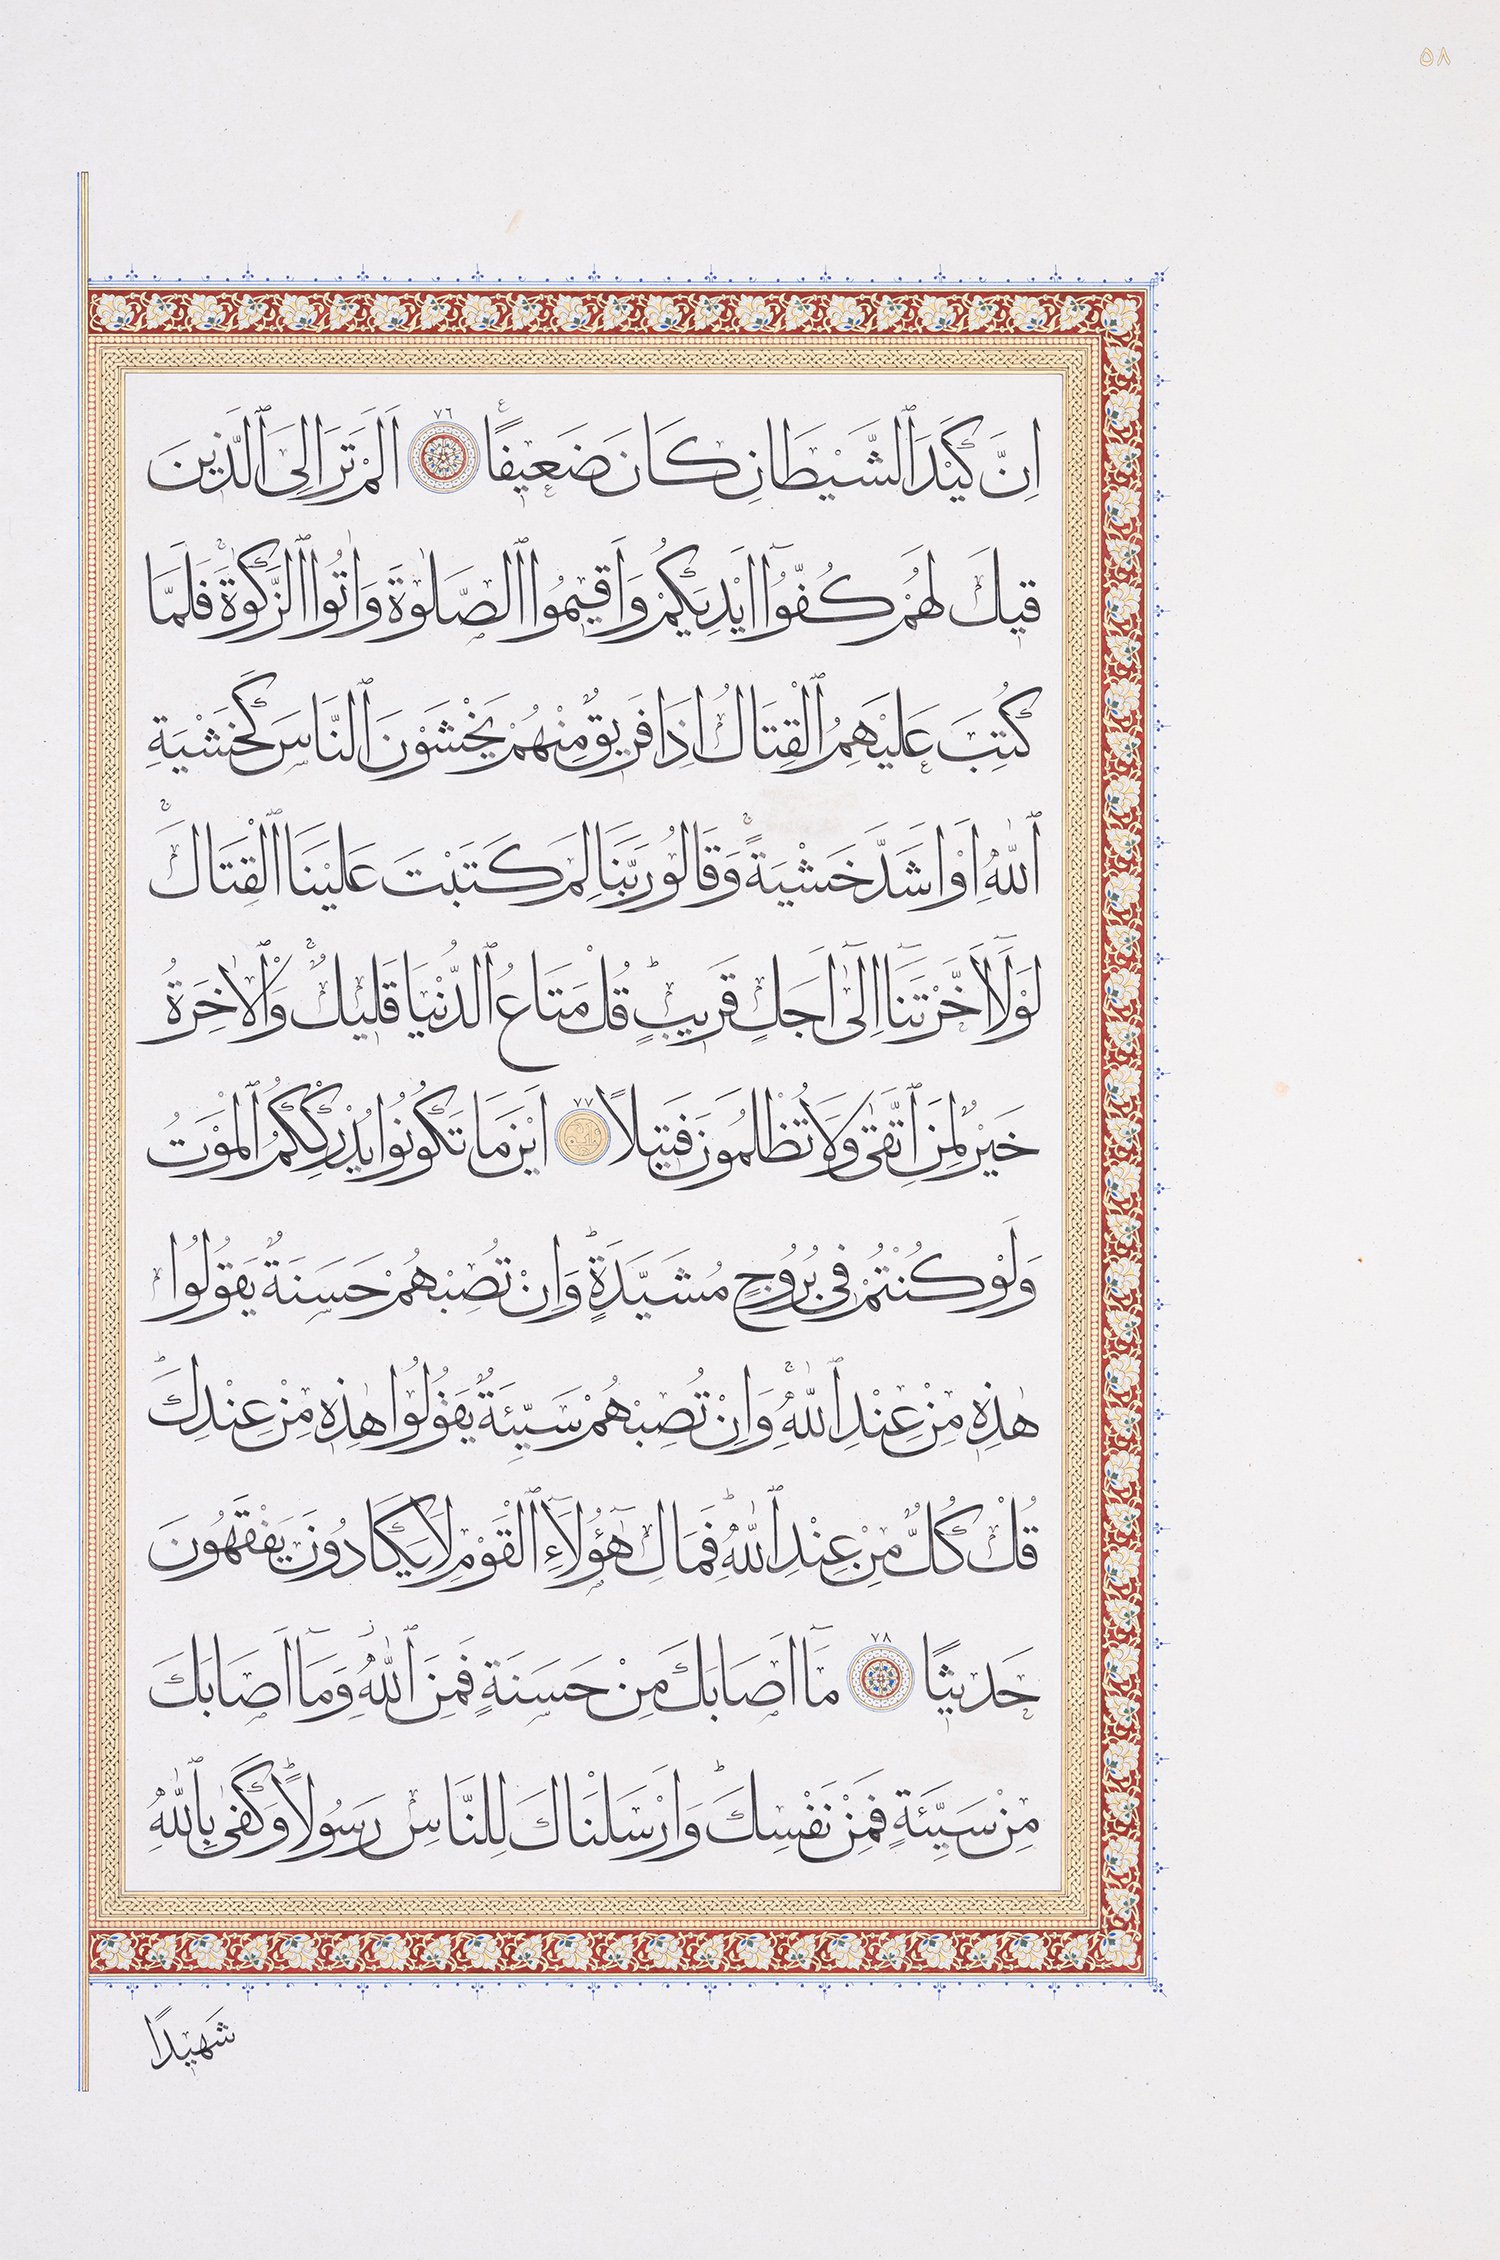 ٥٨
اِنَّ كَيْدَ ٱلشَّيْطَانِ كَانَ ضَعِيفًا ٧٦ اَلَمْ تَرَ اِلَى ٱلَّذِينَ
قِيلَ لَهُمْ كُفُّوٓا اَيْدِيَكُمْ وَاَقِيمُوا ٱلصَّلٰوةَ وَاٰتُوا ٱلزَّكٰوةَ فَلَمَّا
كُتِبَ عَلَيْهِمُ ٱلْقِتَالُ اِذَا فَرِيقٌ مِنْهُمْ يَخْشَوْنَ ٱلنَّاسَ كَخَشْيَةِ
ٱللّٰهِ اَوْ اَشَدَّ خَشْيَةً وَقَالُوا رَبَّنَا لِمَ كَتَبْتَ عَلَيْنَا ٱلْقِتَالَ
لَوْلَٓا اَخَّرْتَنَٓا اِلٰٓى اَجَلٍ قَرِيبٍ قُلْ مَتَاعُ ٱلدُّنْيَا قَلِيلٌ وَٱلْاٰخِرَةُ
خَيْرٌ لِمَنِ ٱتَّقٰى وَلَا تُظْلَمُونَ فَتِيلًا ٧٧ اَيْنَ مَا تَكُونُوا يُدْرِكْكُمُ ٱلْمَوْتُ
وَلَوْ كُنْتُمْ فِى بُرُوجٍ مُشَيَّدَةٍ وَاِنْ تُصِبْهُمْ حَسَنَةٌ يَقُولُوا
هٰذِهِ مِنْ عِنْدِ ٱللّٰهِ وَاِنْ تُصِبْهُمْ سَيِّئَةٌ يَقُولُوا هٰذِهِ مِنْ عِنْدِكَ
قُلْ كُلٌّ مِنْ عِنْدِ ٱللّٰهِ فَمَالِ هٰٓؤُلَٓاءِ ٱلْقَوْمِ لَا يَكَادُونَ يَفْقَهُونَ
حَدِيثًا ٧٨ مَٓا اَصَابَكَ مِنْ حَسَنَةٍ فَمِنَ ٱللّٰهِ وَمَٓا اَصَابَكَ
مِنْ سَيِّئَةٍ فَمِنْ نَفْسِكَ وَاَرْسَلْنَاكَ لِلنَّاسِ رَسُولًا وَكَفٰى بِٱللّٰهِ
شَهِيدًا